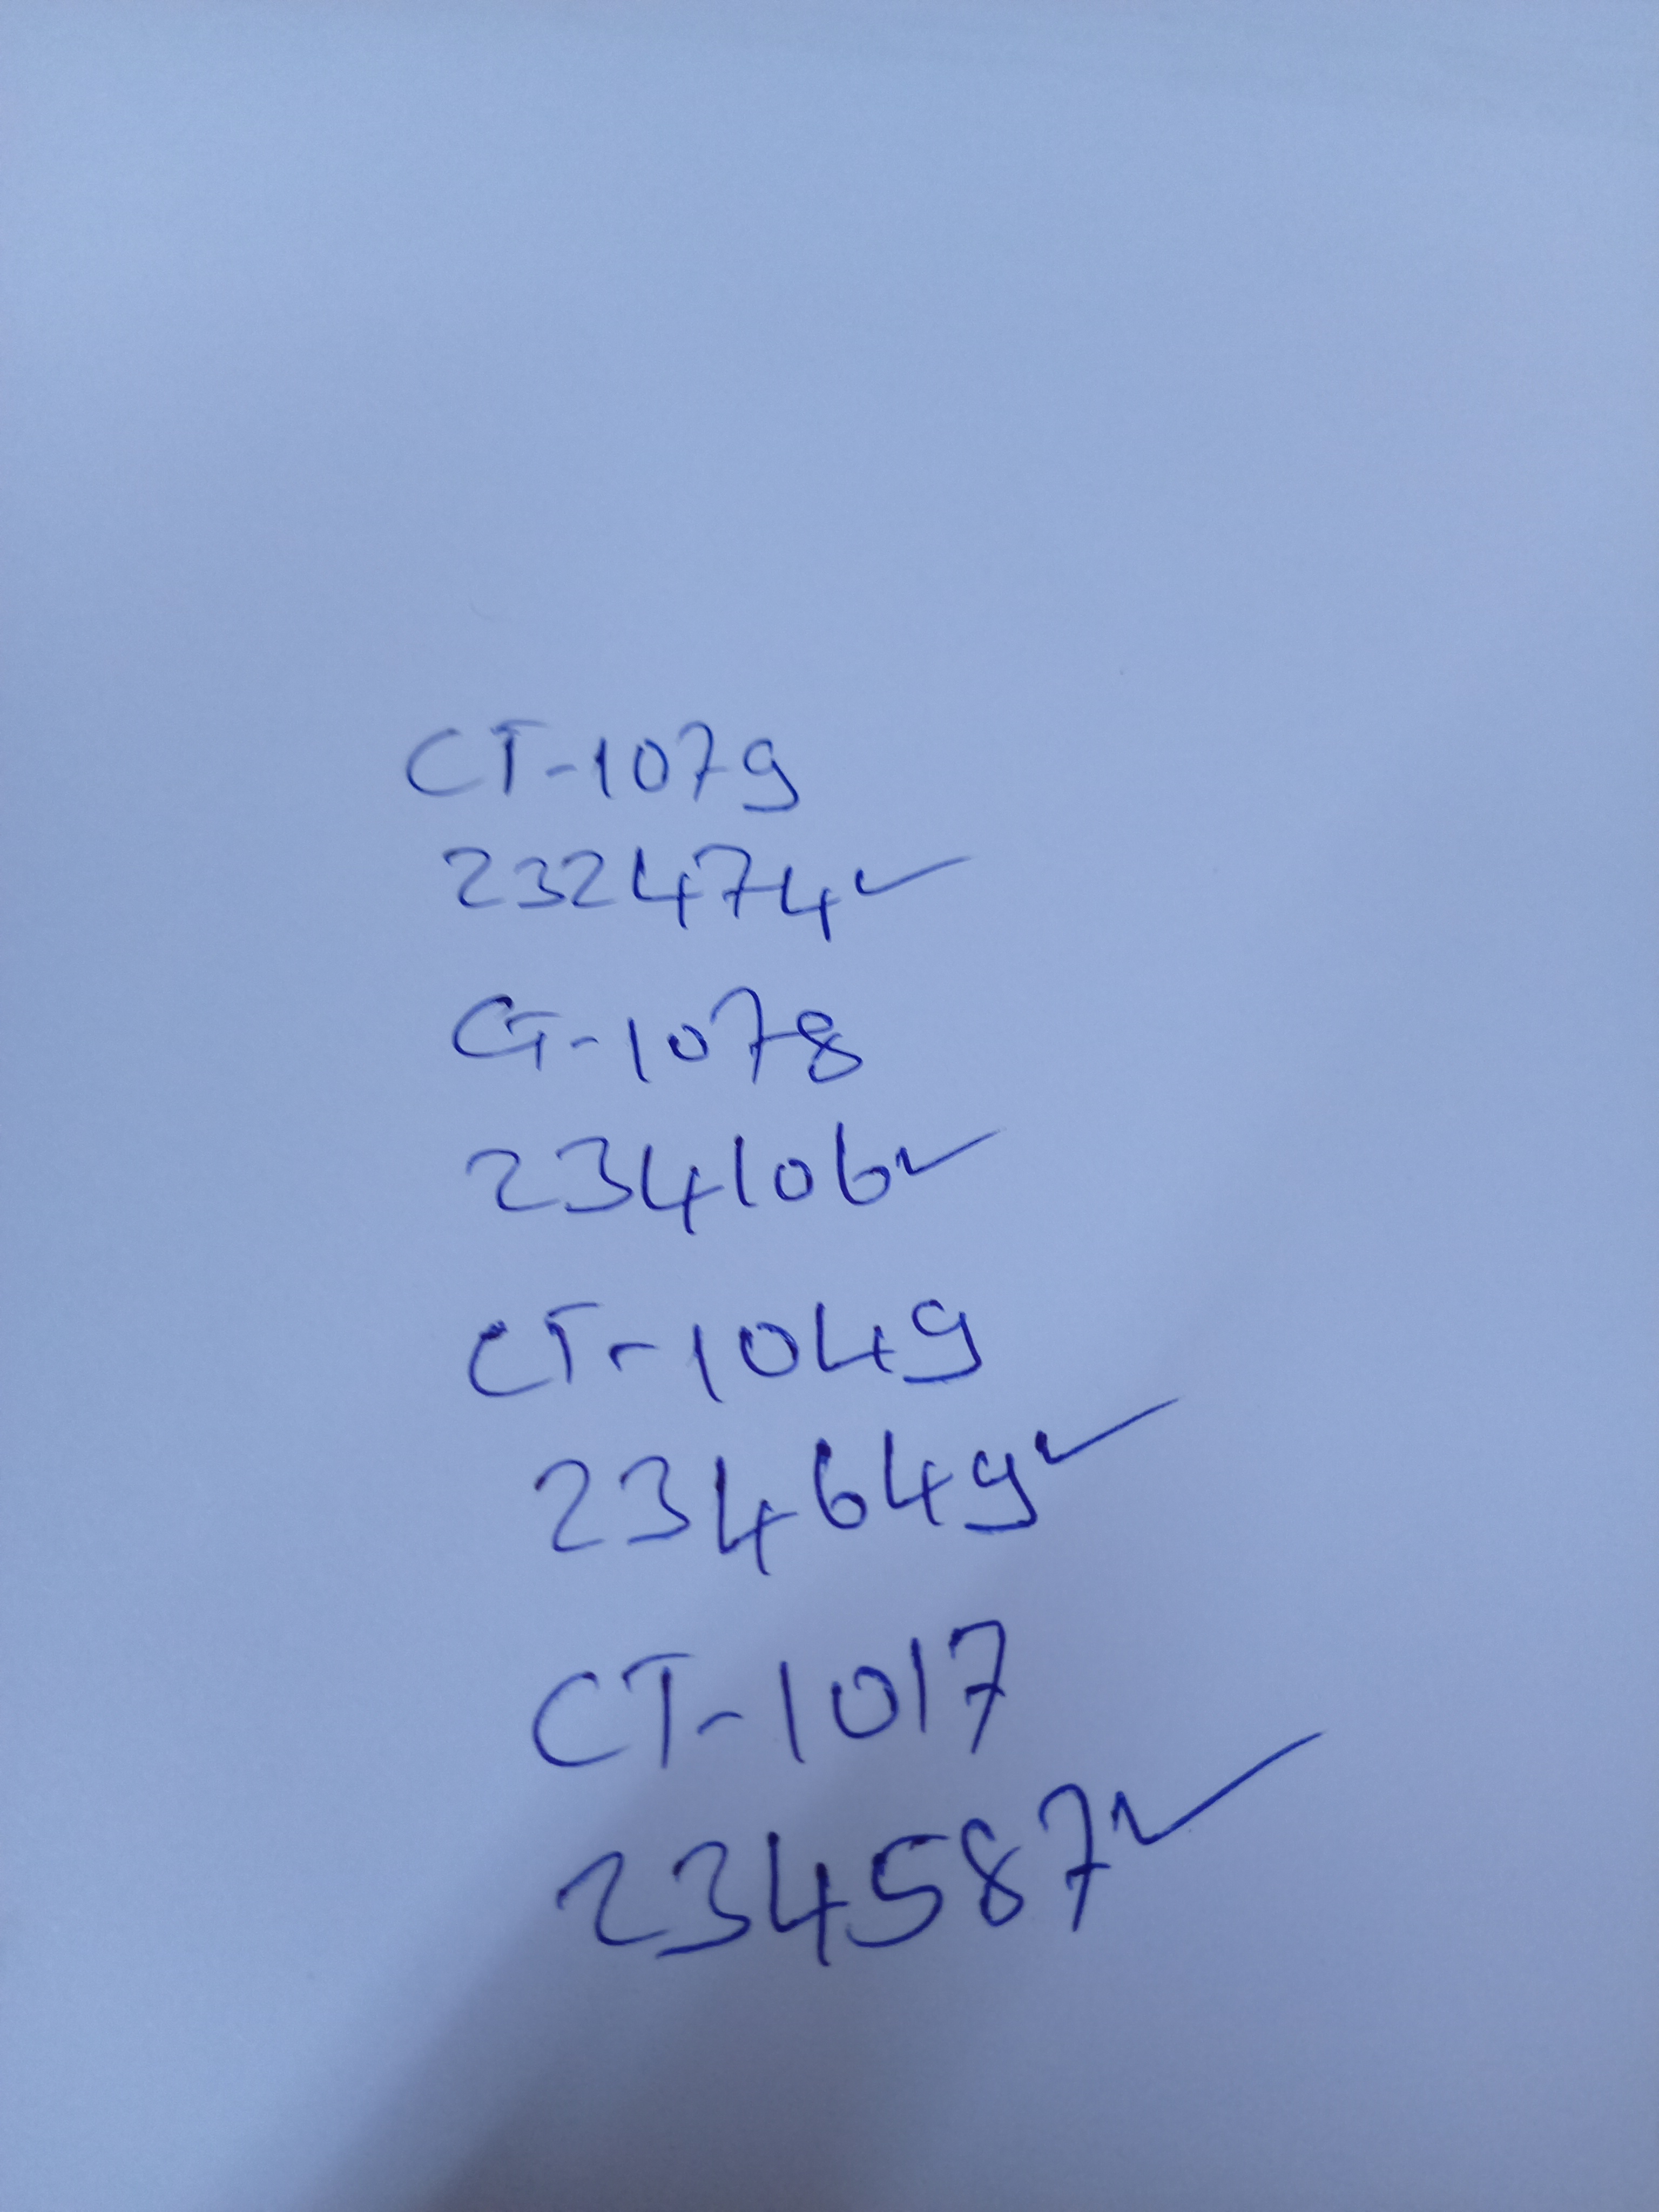 CT-1079
232474✓
CT-1078
234106✓
CT-1049
234649✓
CT-1017
234587✓